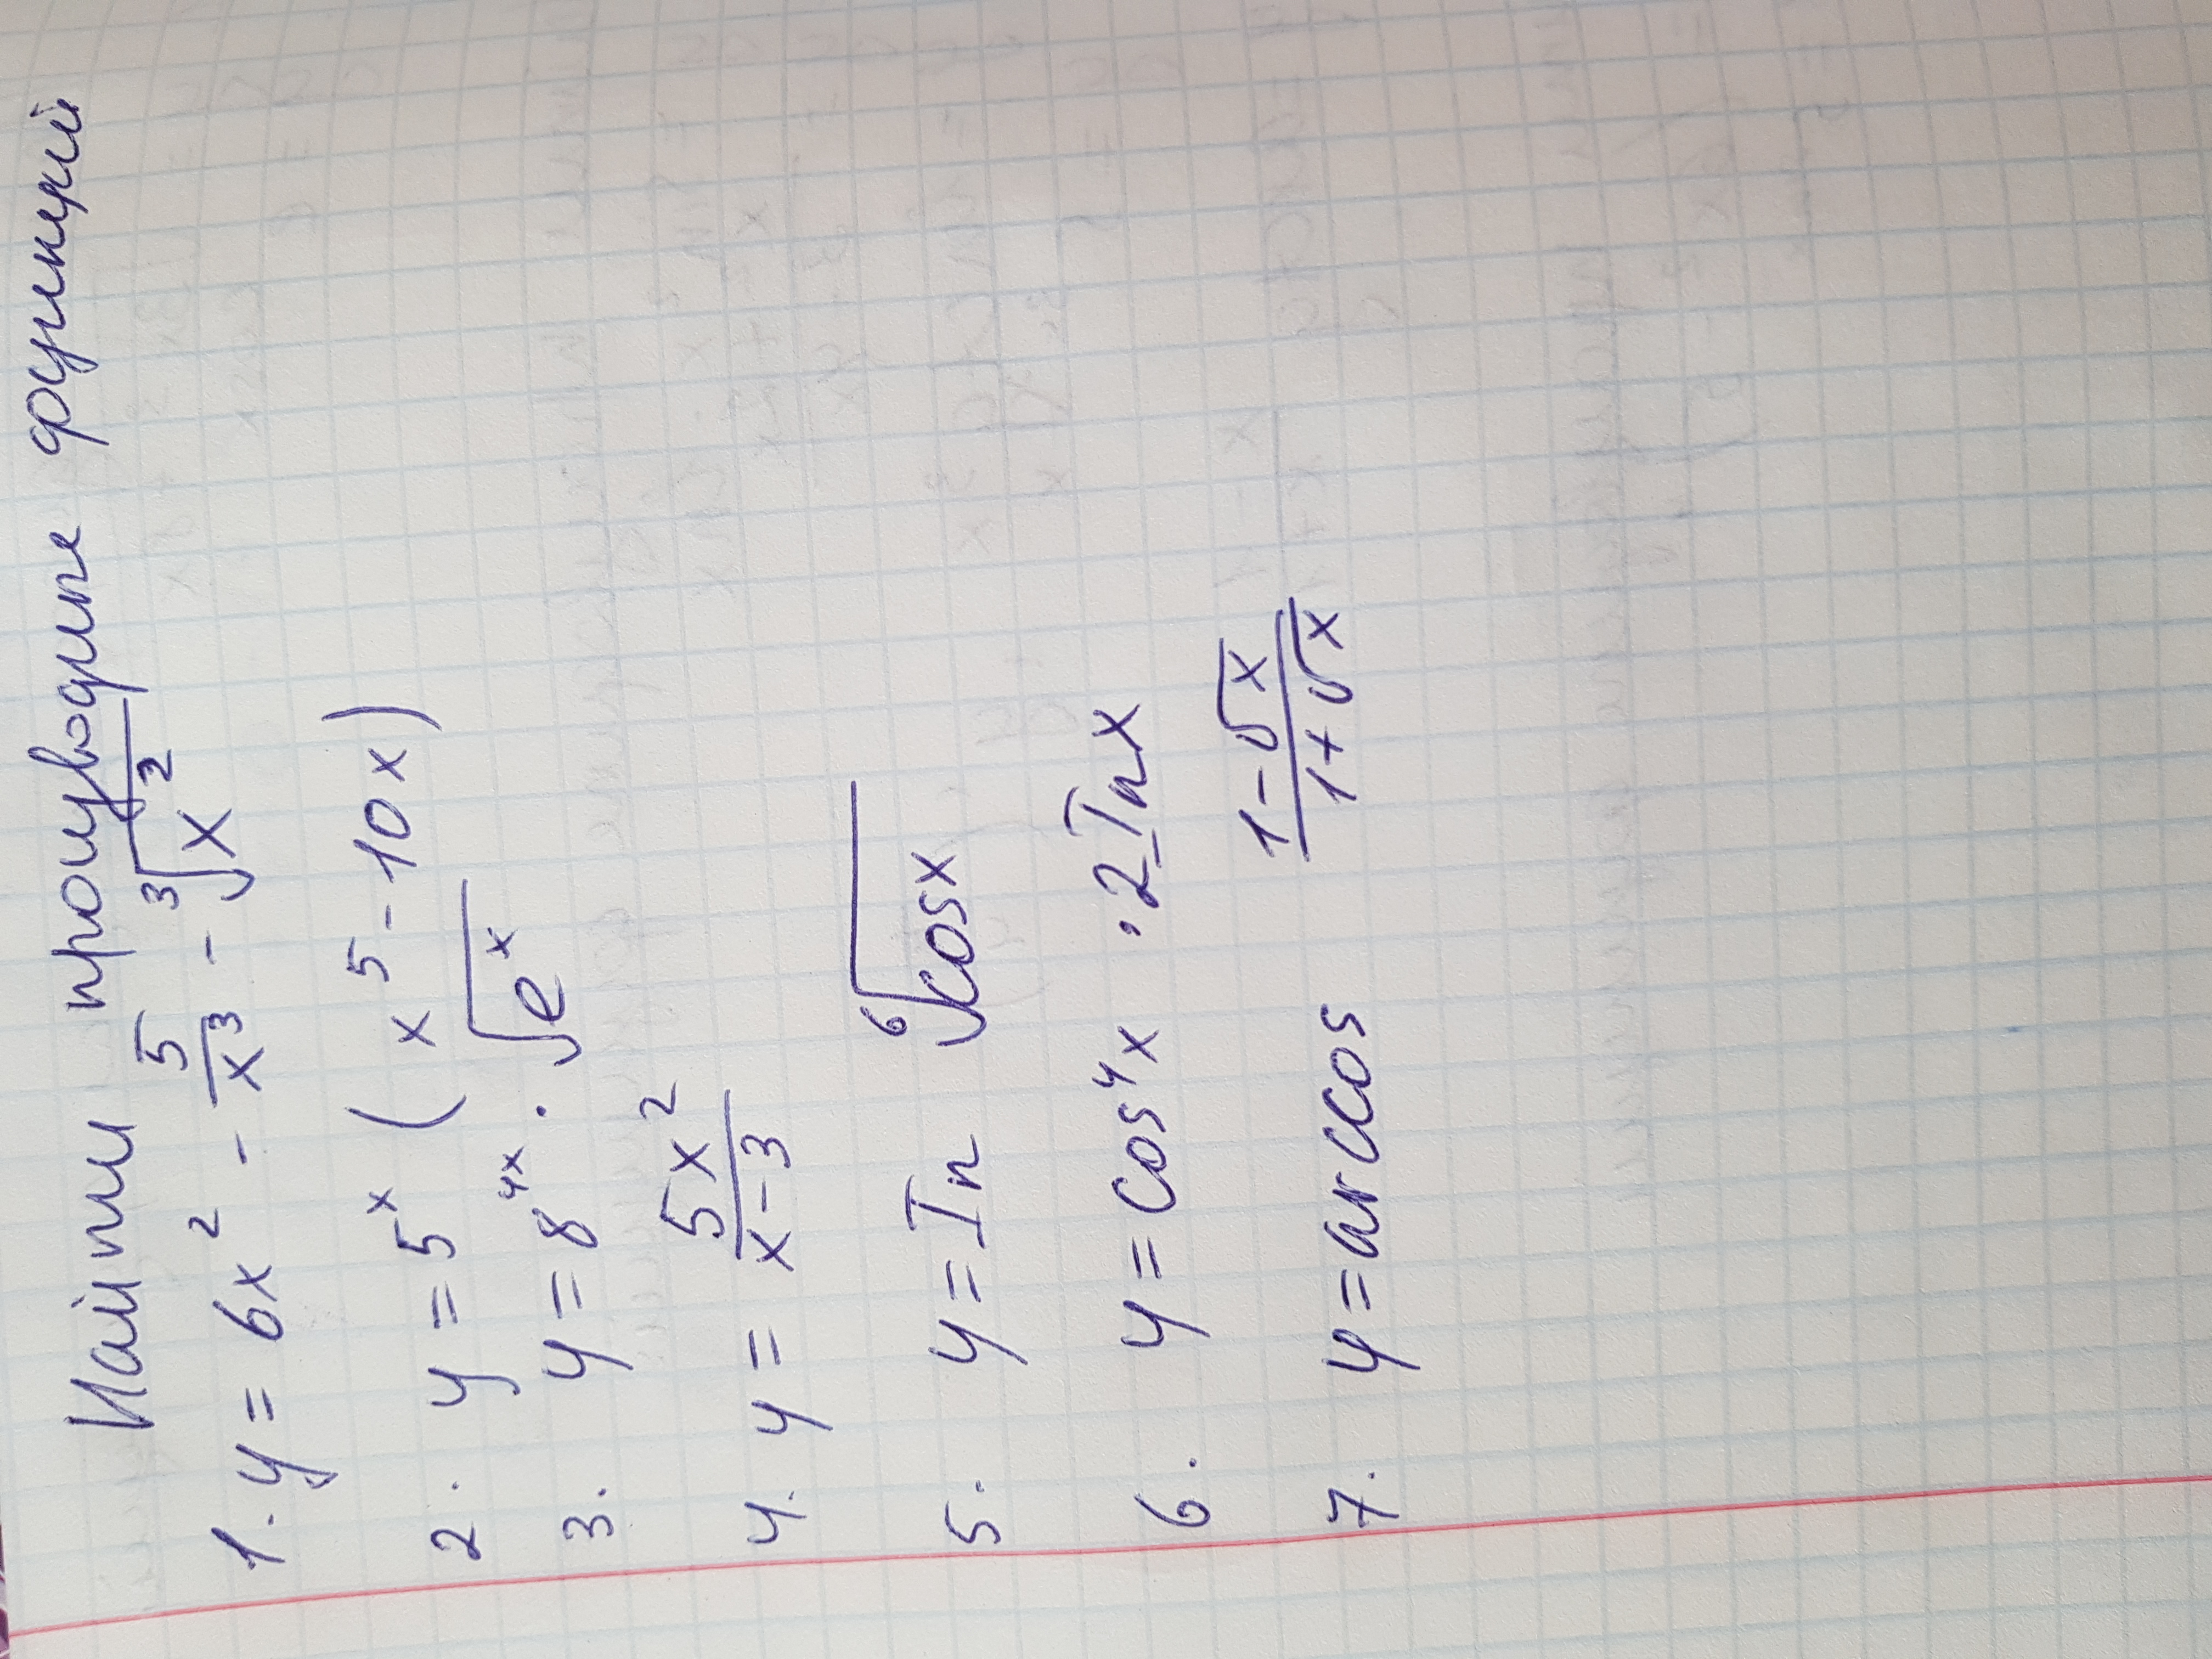 Найти производные функций
1. y = 6x² - 5/x³ - ³√x²
2. y = 5ˣ (x⁵ - 10x)
3. y = 8⁴ˣ · √eˣ
4. y = 5x²/x-3
5. y = In ⁶√cosx
6. y = cos⁴x · 2Inx
7. y = arccos 1-√x/1+√x